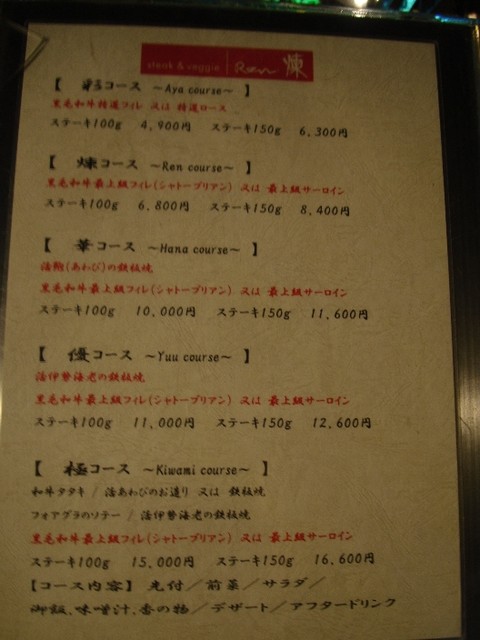 steak & veggie Ren 煉
【 彩コース ～Aya course～ 】
黒毛和牛特選フィレ 又は 特選ロース
ステーキ100g 4,900円 ステーキ150g 6,300円
【 煉コース ～Ren course～ 】
黒毛和牛最上級フィレ(シャトーブリアン) 又は 最上級サーロイン
ステーキ100g 6,800円 ステーキ150g 8,400円
【 華コース ～Hana course～ 】
活鮑(あわび)の鉄板焼
黒毛和牛最上級フィレ(シャトーブリアン) 又は 最上級サーロイン
ステーキ100g 10,000円 ステーキ150g 11,600円
【 優コース ～Yuu course～ 】
活伊勢海老の鉄板焼
黒毛和牛最上級フィレ(シャトーブリアン) 又は 最上級サーロイン
ステーキ100g 11,000円 ステーキ150g 12,600円
【 極コース ～Kiwami course～ 】
和牛タタキ / 活あわびのお造り 又は 鉄板焼
フォアグラのソテー / 活伊勢海老の鉄板焼
黒毛和牛最上級フィレ(シャトーブリアン) 又は 最上級サーロイン
ステーキ100g 15,000円 ステーキ150g 16,600円
【コース内容】 先付／前菜／サラダ／
御飯、味噌汁、香の物／デザート／アフタードリンク